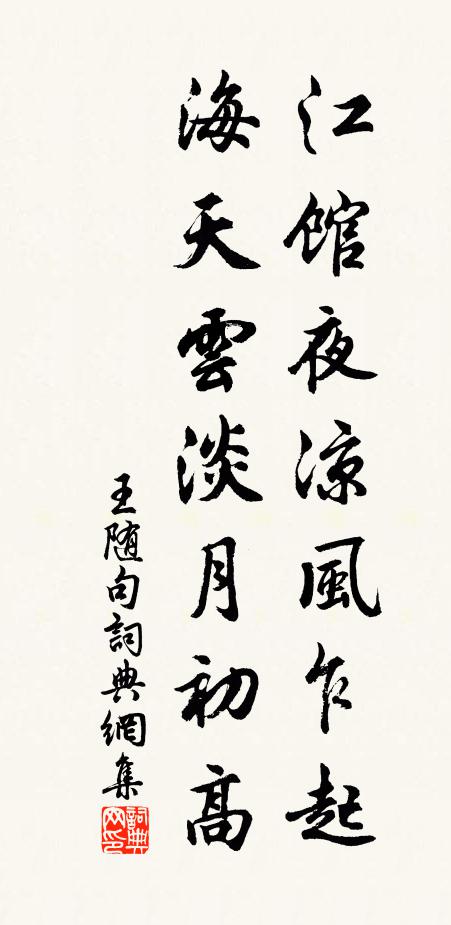 江館夜涼風乍起
海天雲淡月初高
王随句詞典網集
詞典网印